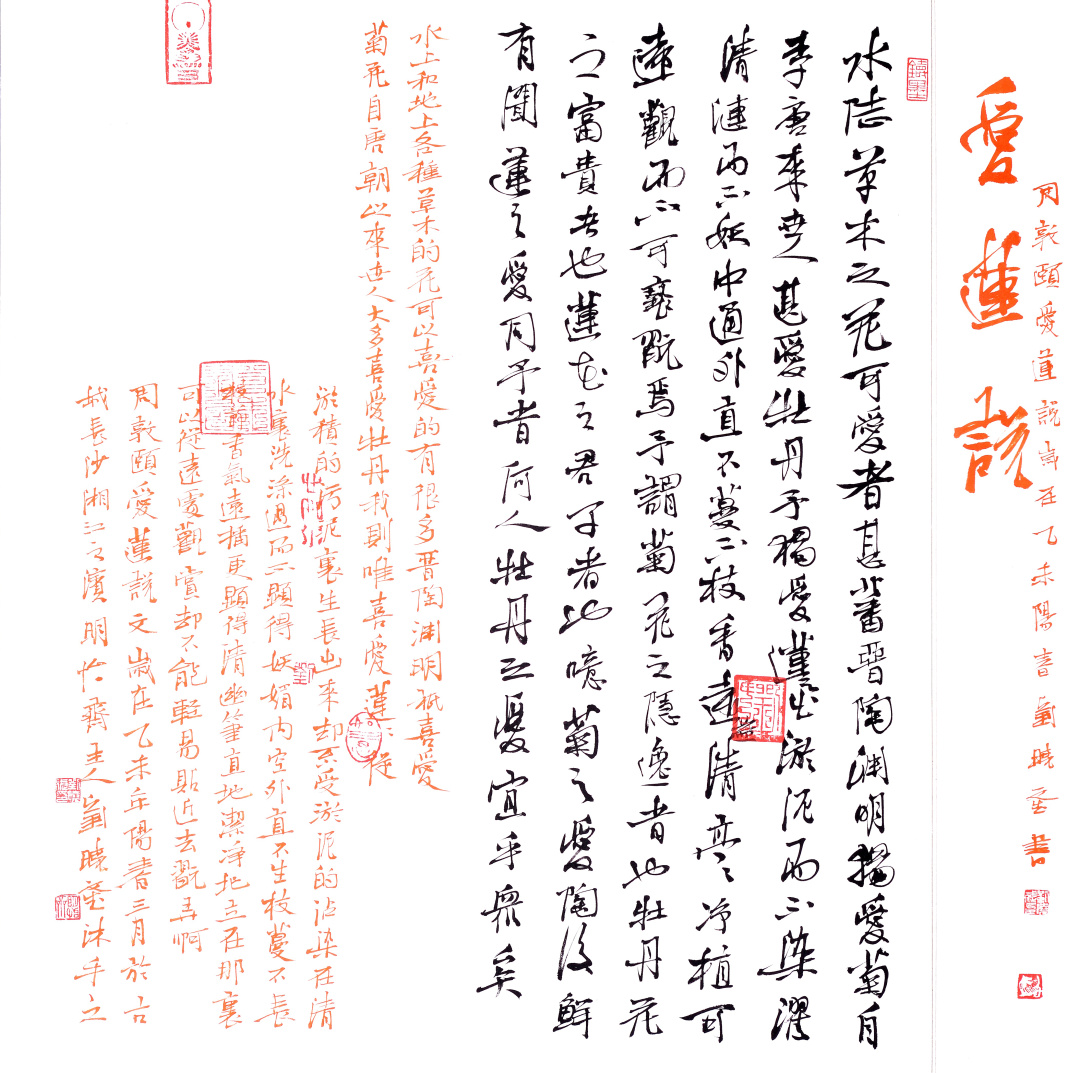 周敦頤愛蓮說歲在乙未陽春劉曉書
愛蓮說
水陸草木之花可愛者甚蕃晉陶淵明獨愛菊自
李唐來世人甚愛牡丹予獨愛蓮出淤泥而不染濯
清漣而不妖中通外直不蔓不枝香遠益清亭々净植可
遠觀而不可褻翫焉予謂菊花之隱逸者也牡丹花
之富貴者也蓮花之君子者也噫菊之愛陶後鮮
有聞蓮之愛同予者何人牡丹之愛宜乎衆矣
水上和地上各種草木的花可以喜愛的有很多晉陶淵明祇喜愛
菊花自唐朝以來世人大多喜愛牡丹我則唯喜愛蓮從
淤積的污泥裏生長出來却不受淤泥的沾染在清
水裏洗滌過而不顯得妖媚内空外直不生枝蔓不長
枝節香氣遠播更顯得清幽筆直地潔净地立在那裏
可以從遠處觀賞却不能輕易貼近去翫弄啊
周敦頤愛蓮說文歲在乙未年陽春三月於古
城長沙湘江之濱明齋主人劉曉沐手之